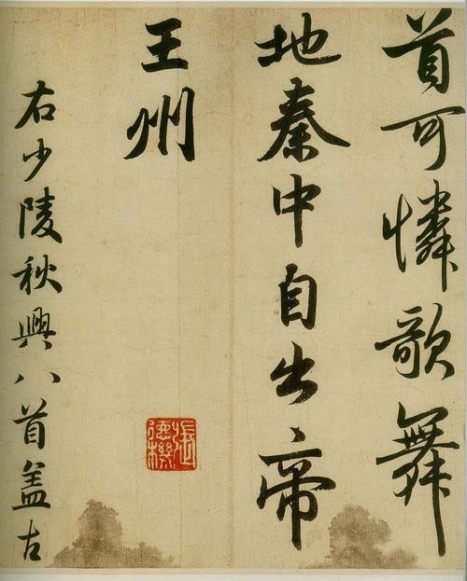 首可憐歌舞
地秦中自出帝
王州
張德機
右少陵秋興八首盖古